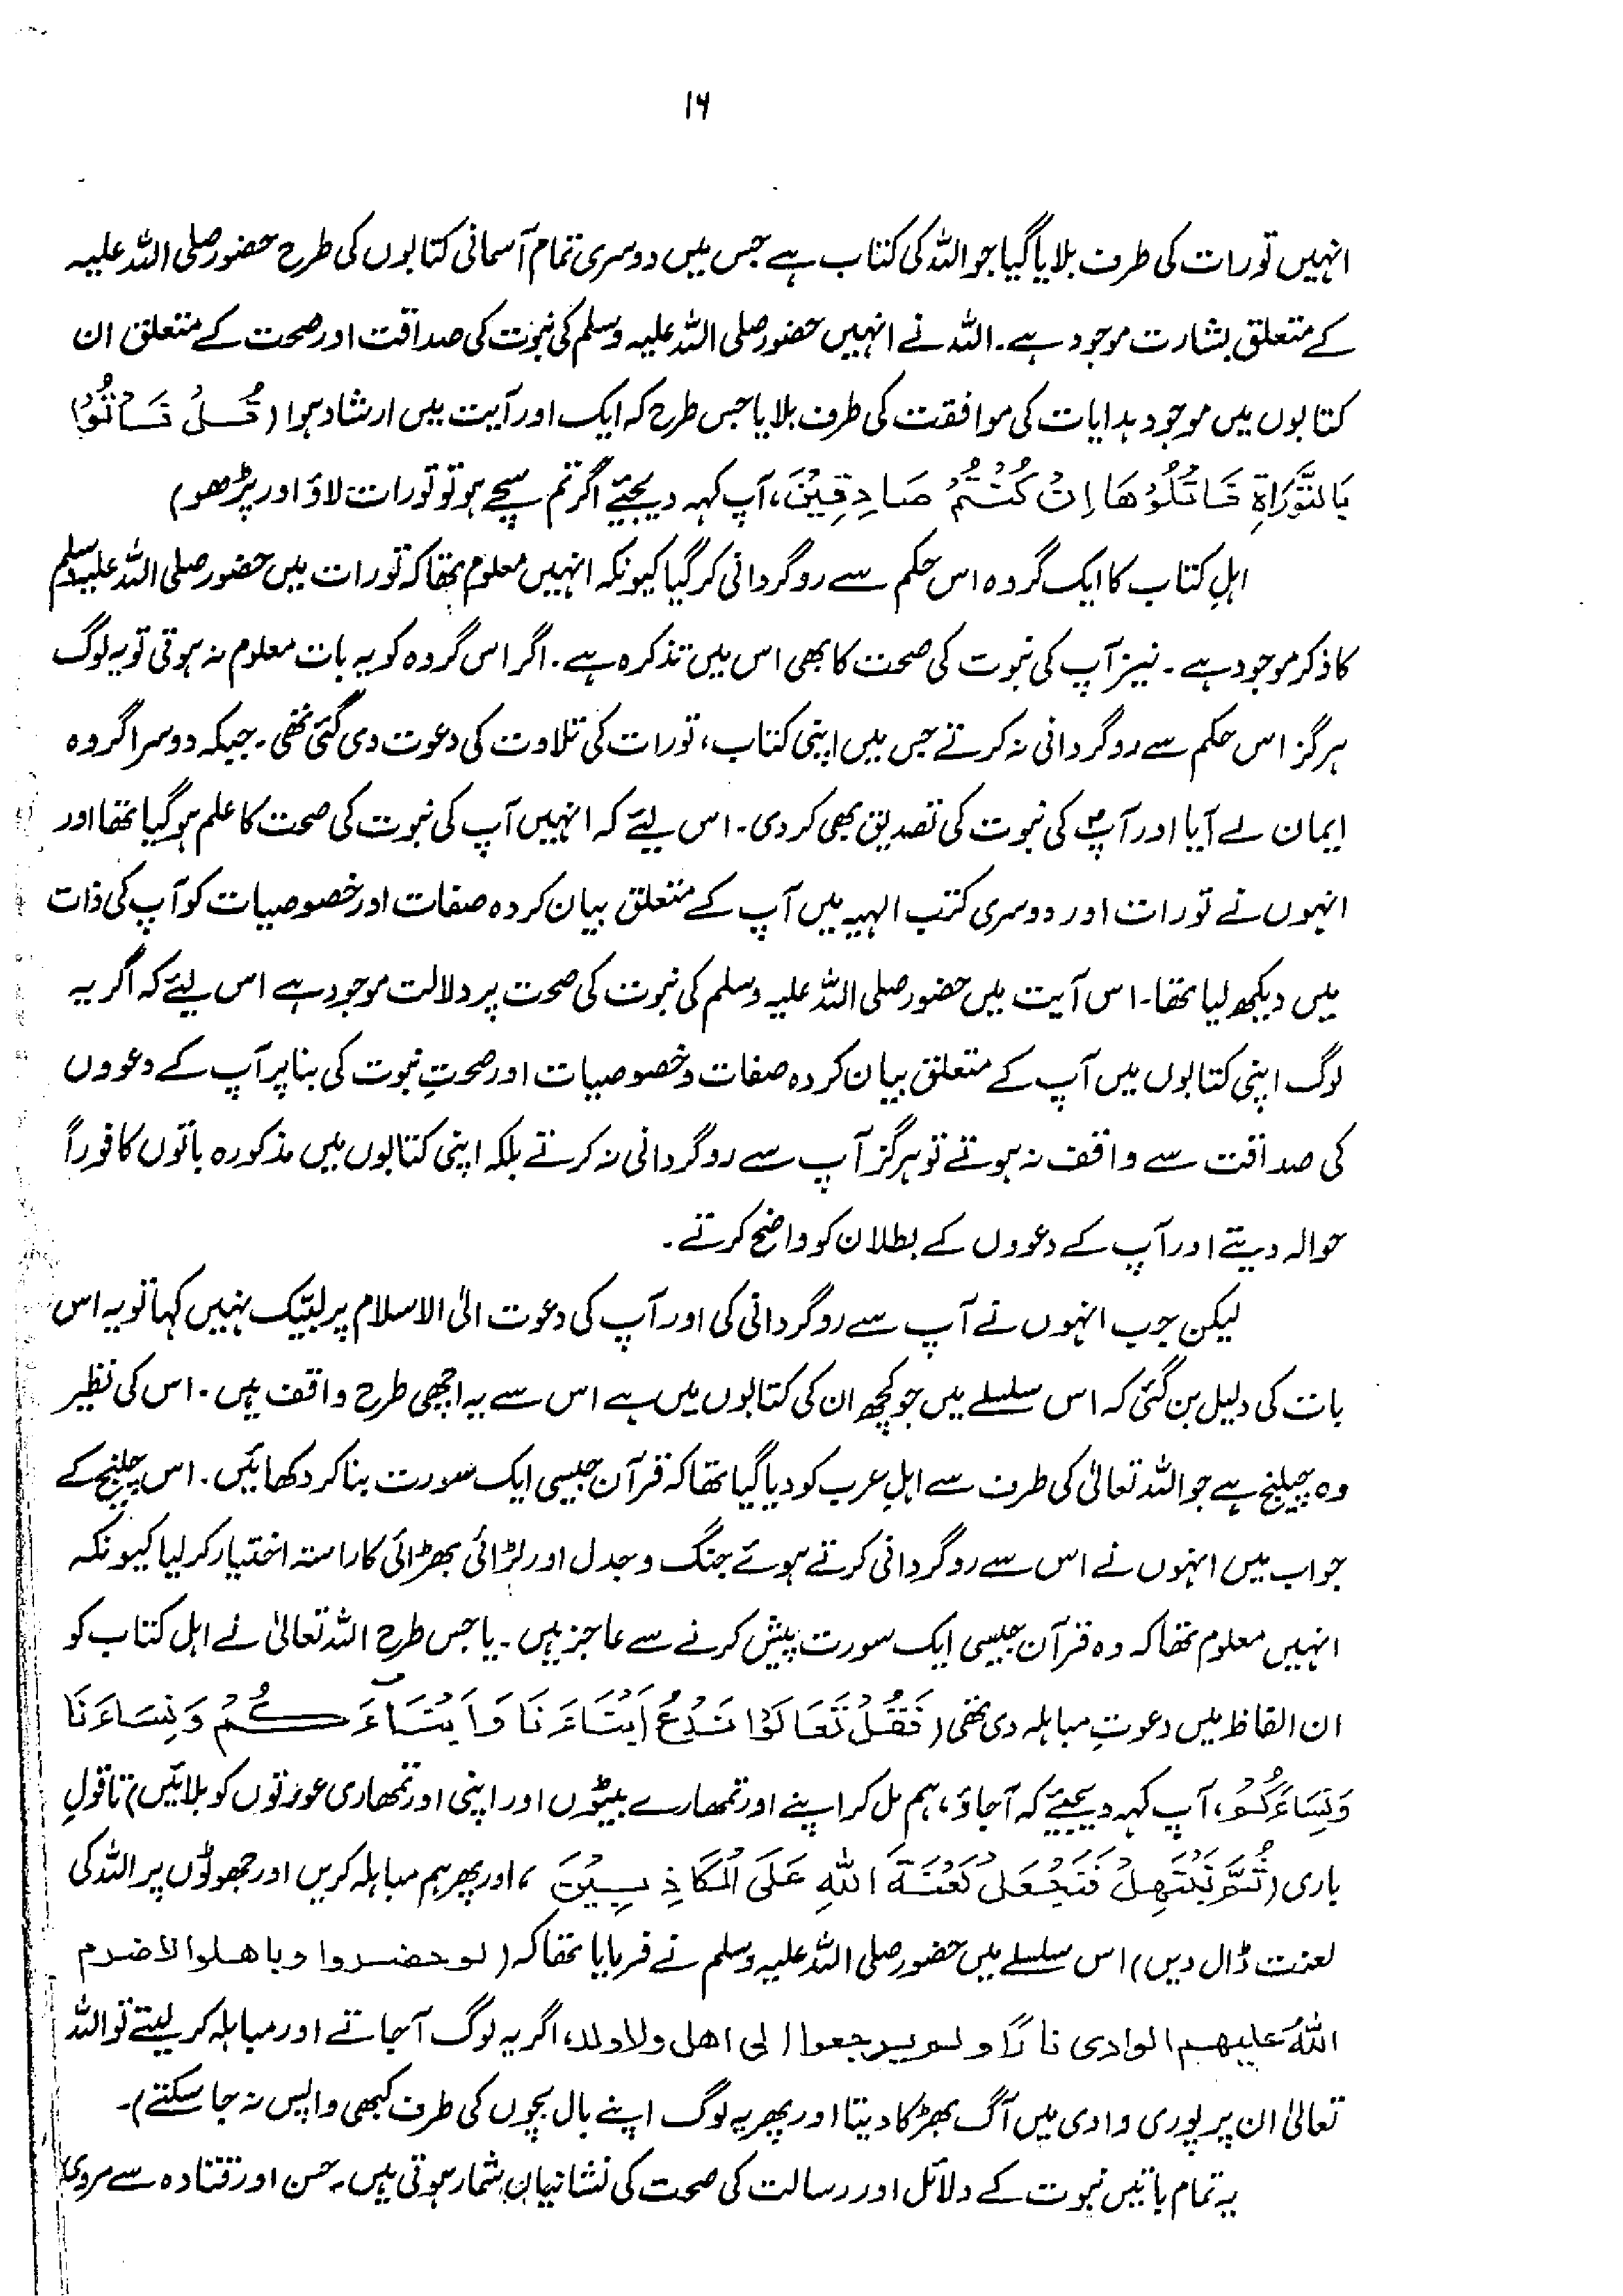 ۱۶
انہیں تورات کی طرف بلایا گیا جو اللہ کی کتاب ہے جس میں دوسری تمام آسمانی کتابوں کی طرح حضور صلی اللہ علیہ
کے متعلق بشارت موجود ہے۔ اللہ نے انہیں حضور صلی اللہ علیہ وسلم کی نبوت کی صداقت اور صحت کے متعلق ان
کتابوں میں موجود ہدایات کی موافقت کی طرف بلایا جس طرح کہ ایک اور آیت میں ارشاد ہوا (قُلْ فَأْتُوْا
بِالتَّوْرَاةِ فَاتْلُوْهَا اِنْ كُنْتُمْ صَادِقِيْنَ، آپ کہہ دیجئیے اگر تم سچے ہو تو تورات لاؤ اور پڑھو)
اہلِ کتاب کا ایک گروہ اس حکم سے روگردانی کر گیا کیونکہ انہیں معلوم تھا کہ تورات میں حضور صلی اللہ علیہ وسلم
کا ذکر موجود ہے۔ نیز آپ کی نبوت کی صحت کا بھی اس میں تذکرہ ہے۔ اگر اس گروہ کو یہ بات معلوم نہ ہوتی تو یہ لوگ
ہرگز اس حکم سے روگردانی نہ کرتے جس میں اپنی کتاب، تورات کی تلاوت کی دعوت دی گئی تھی۔ جبکہ دوسرا گروہ
ایمان لے آیا اور آپؐ کی نبوت کی تصدیق بھی کر دی۔ اس لیئے کہ انہیں آپ کی نبوت کی صحت کا علم ہو گیا تھا اور
انہوں نے تورات اور دوسری کتب الہیہ میں آپ کے متعلق بیان کردہ صفات اور خصوصیات کو آپ کی ذات
میں دیکھ لیا تھا۔ اس آیت میں حضور صلی اللہ علیہ وسلم کی نبوت کی صحت پر دلالت موجود ہے اس لیئے کہ اگر یہ
لوگ اپنی کتابوں میں آپ کے متعلق بیان کردہ صفات و خصوصیات اور صحتِ نبوت کی بنا پر آپ کے دعووں
کی صداقت سے واقف نہ ہوتے تو ہرگز آپ سے روگردانی نہ کرتے بلکہ اپنی کتابوں میں مذکورہ باتوں کا فوراً
حوالہ دیتے اور آپ کے دعووں کے بطلان کو واضح کرتے۔
لیکن جب انہوں نے آپ سے روگردانی کی اور آپ کی دعوت الی الاسلام پر لبیّک نہیں کہا تو یہ اس
بات کی دلیل بن گئی کہ اس سلسلے میں جو کچھ ان کی کتابوں میں ہے اس سے یہ اچھی طرح واقف ہیں۔ اس کی نظیر
وہ چیلنج ہے جو اللہ تعالیٰ کی طرف سے اہلِ عرب کو دیا گیا تھا کہ قرآن جیسی ایک سورت بنا کر دکھائیں۔ اس چیلنج کے
جواب میں انہوں نے اس سے روگردانی کرتے ہوئے جنگ و جدل اور لڑائی بھڑائی کا راستہ اختیار کر لیا کیونکہ
انہیں معلوم تھا کہ وہ قرآن جیسی ایک سورت پیش کرنے سے عاجز ہیں۔ یا جس طرح اللہ تعالیٰ نے اہل کتاب کو
ان الفاظ میں دعوتِ مباہلہ دی تھی (فَقُلْ تَعَالَوْا نَدْعُ اَبْنَاءَنَا وَاَبْنَاءَكُمْ وَنِسَاءَنَا
وَنِسَاءَكُمْ، آپ کہہ دیجیئے کہ آجاؤ، ہم مل کر اپنے اور تمھارے بیٹوں اور اپنی اور تمھاری عورتوں کو بلائیں) تا قولِ
باری (ثُمَّ نَبْتَهِلْ فَنَجْعَلْ لَعْنَةَ اللهِ عَلَى الْكَاذِبِيْنَ، اور پھر ہم مباہلہ کریں اور جھوٹوں پر اللہ کی
لعنت ڈال دیں) اس سلسلے میں حضور صلی اللہ علیہ وسلم نے فرمایا تھا کہ (لو حضروا وباهلوا لاضرم
اللهُ عليهم الوادى نارًا ولم يرجعوا الى اهل ولا ولد، اگر یہ لوگ آجاتے اور مباہلہ کر لیتے تو اللہ
تعالیٰ ان پر پوری وادی میں آگ بھڑکا دیتا اور پھر یہ لوگ اپنے بال بچوں کی طرف کبھی واپس نہ جا سکتے)۔
یہ تمام باتیں نبوت کے دلائل اور رسالت کی صحت کی نشانیاں شمار ہوتی ہیں۔ حسن اور قتادہ سے مروی